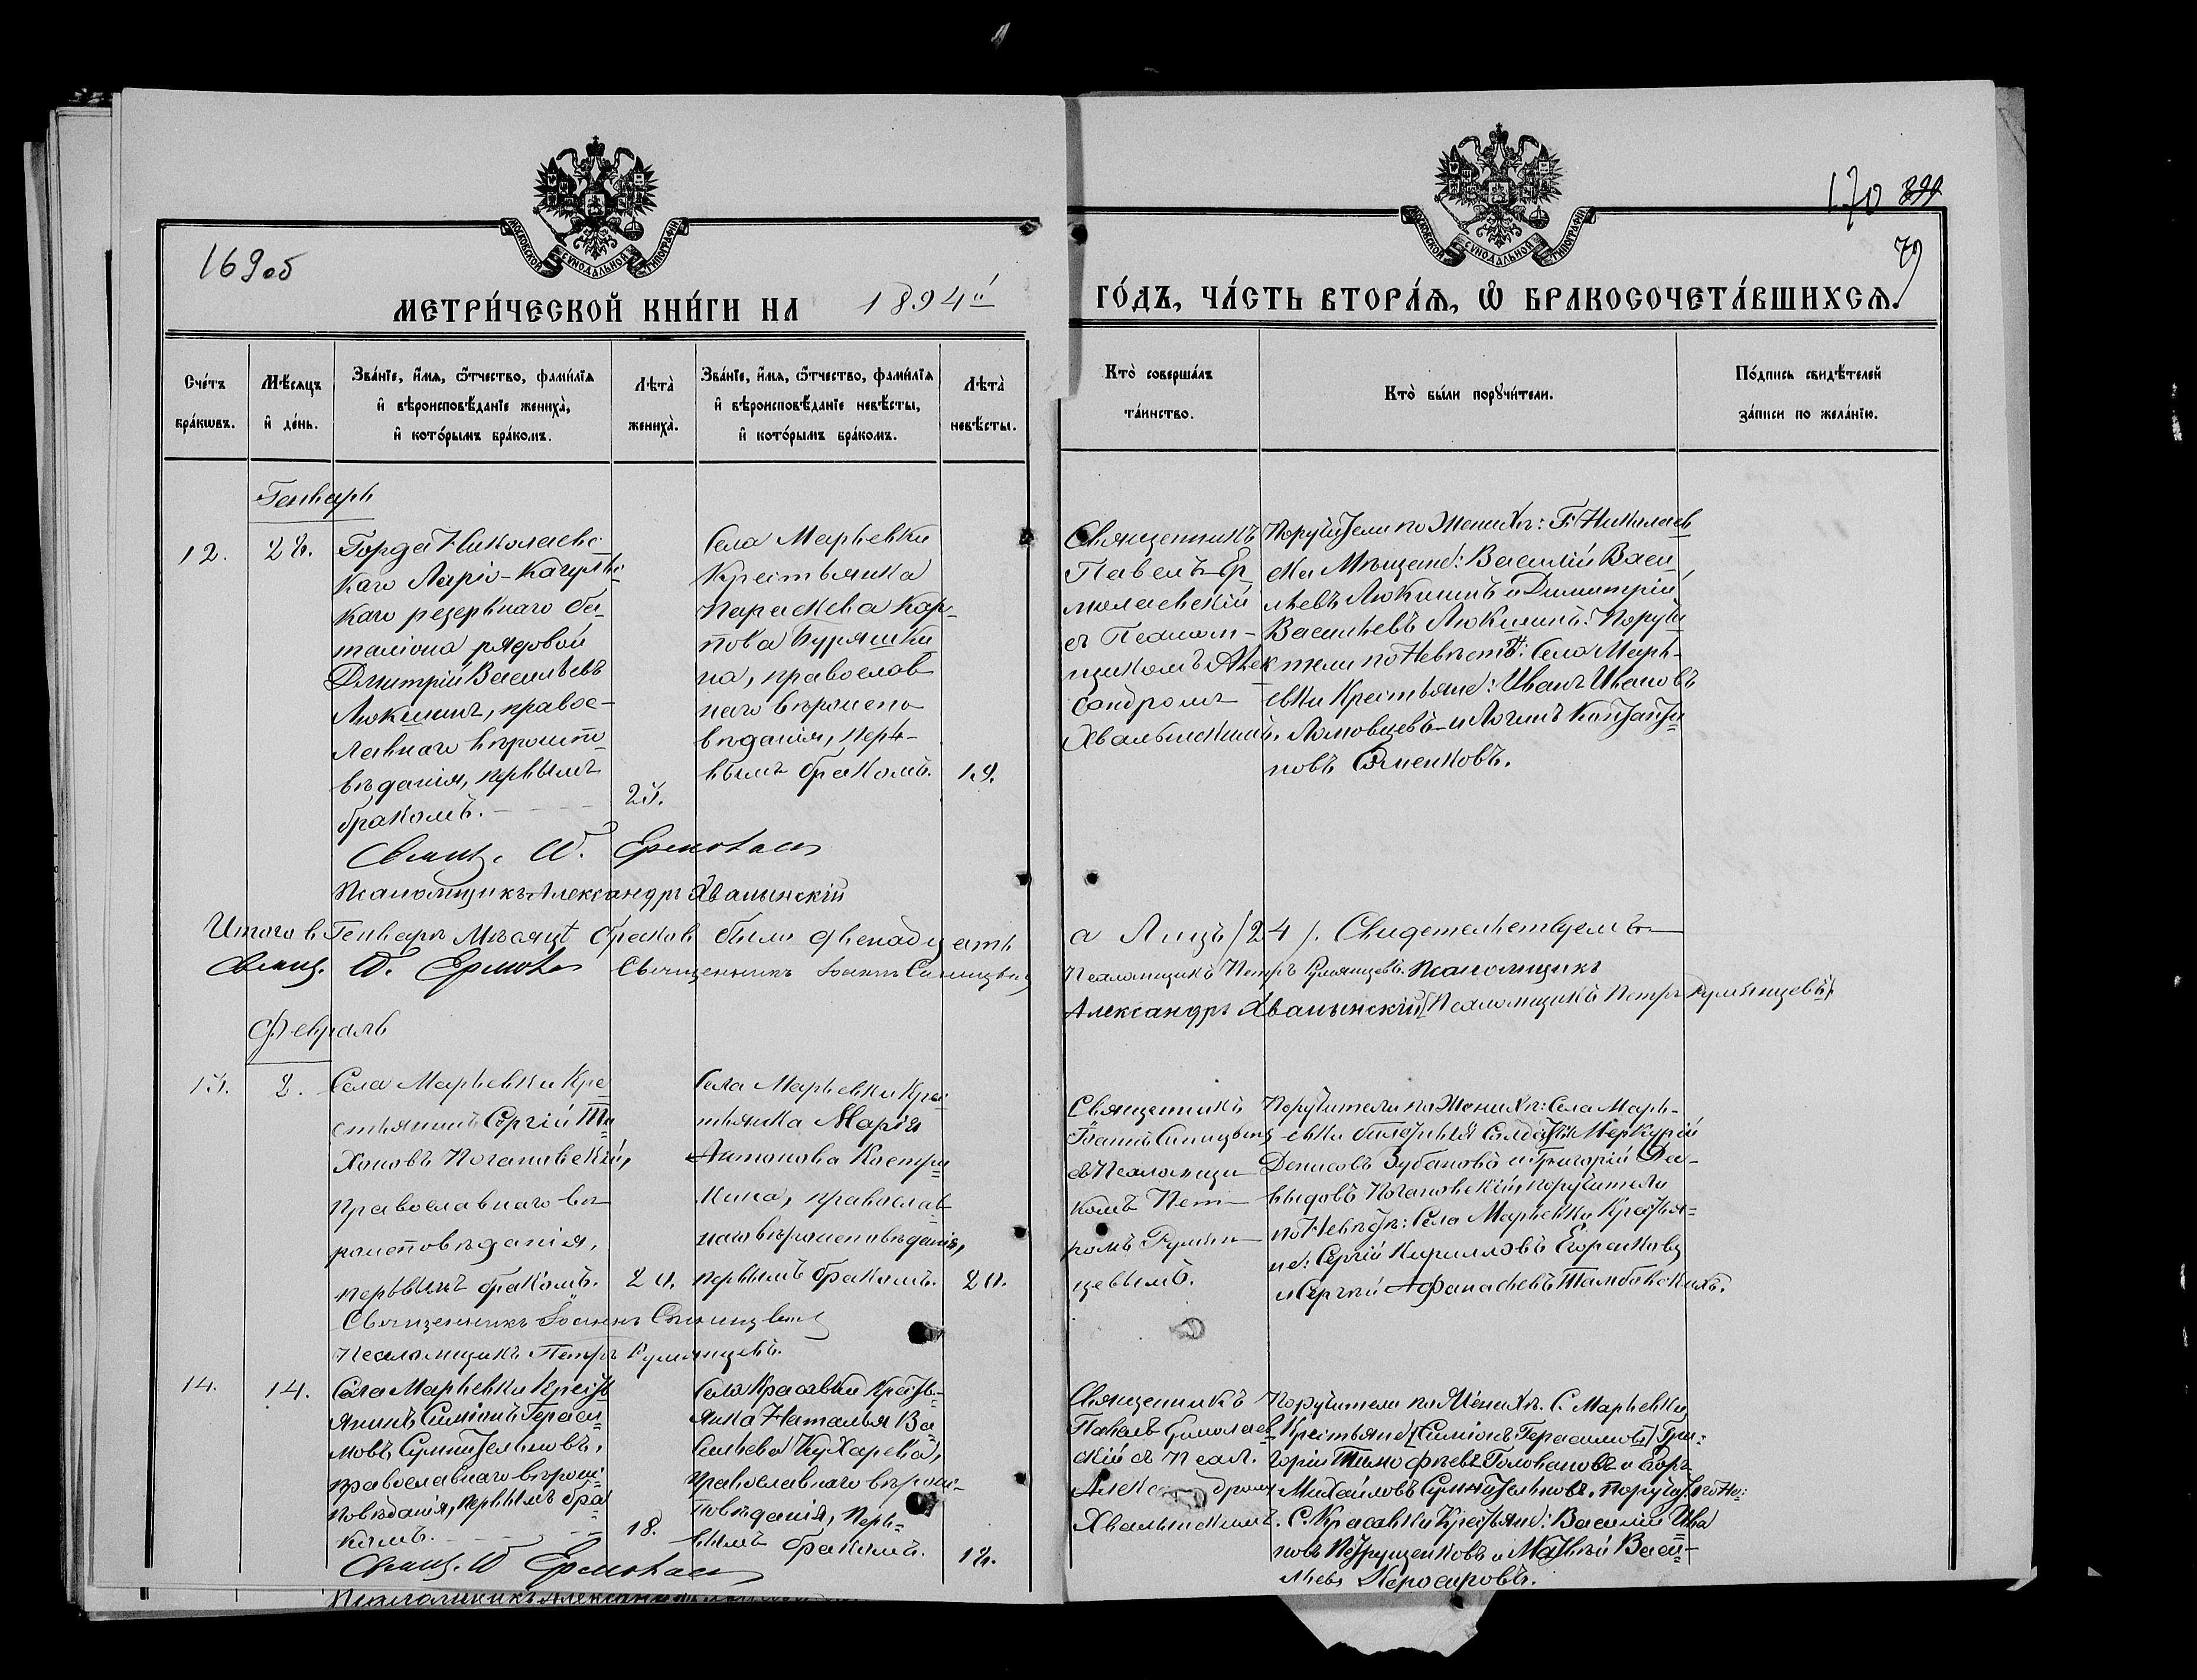 170 899
169об
79
МОСКОВСКОЙ СѴНОДАЛЬНОЙ ТИПОГРАФІИ
МОСКОВСКОЙ СѴНОДАЛЬНОЙ ТИПОГРАФІИ
МЕТРИ́ЧЕСКОЙ КНИ́ГИ НА 1894й
ГО́ДЪ, ЧА́СТЬ ВТОРА́Ѧ, Ѽ БРАКОСОЧЕТА́ВШИХСѦ.
Сче́тъ
бра́кѡвъ.
Мѣ́сяцъ
и҆ де́нь.
Зва́нїе, и҆́мѧ, ѻ҆́тчество, фамѝлїѧ
и҆ вѣроисповѣ́данїе жениха̀,
и҆ кото́рымъ бра́комъ.
Лѣта̀
жениха̀.
Зва́нїе, и҆́мѧ, ѻ҆́тчество, фамѝлїѧ
и҆ вѣроисповѣ́данїе невѣ́сты,
и҆ кото́рымъ бра́комъ.
Лѣта̀
невѣ́сты.
Кто̀ соверша́лъ
та́инство.
Кто̀ бы́ли порꙋчи́тели.
По́дпись свидѣ́телей
за́писи по жела́нїю.
Генварь
12.
Города Николаевс
каго Ларго-Кагульс-
каго резервнаго ба-
таліона рядовой
Дмитрій Васильевъ
Люкшинъ, правос-
лавнаго вѣроиспо-
вѣданія, первымъ
бракомъ.
Села Марьевки
Крестьянка
Параскева Кар-
пова Буряшки
на, православ
наго вѣроиспо
вѣданія, пер-
вымъ бракомъ.
Священникъ
Павелъ Ер
молаевскій
съ Псалом-
щикомъ Алек
сандромъ
Хвалынскимъ.
Поручители по Женихѣ: Г. Николаев
ска Мѣщане: Василій Васи
льевъ Люкшинъ и Димитрій
Васильевъ Люкшинъ. Поручи
тели по Невѣстѣ: Села Марь-
евки Крестьяне: Иванъ Ивановъ
Ломовцевъ и Логинъ Константи
новъ
Свящ. П. Ермолаев
Псаломщикъ Александръ Хвалынскій
Итого в Генварѣ Мѣсяцѣ браков было двенадцать
а Лицъ /24/. Свидетельствуемъ
Свящ. П. Ермолаев Священникъ Іоаннъ Синицынъ
Псаломщикъ Петръ Румянцевъ. Псаломщикъ
Александръ Хвалынскій [Псаломщикъ Петръ Румянцевъ].
Февраль
13.
2.
Села Марьевки Кре
стьянинъ Сергій Ти
хоновъ Погановскій,
Православнаго вѣ
роисповѣданія,
первымъ бракомъ.
20.
Села Марьевки Крес
тьянка Марія
Антонова Костри
кина, православ
наго вѣроисповѣданія,
первымъ бракомъ.
20.
Священникъ
Іоаннъ Синицынъ
съ Псаломщи
комъ Пет-
ромъ Румян
цевымъ.
Поручители по Женихѣ: Села Марь-
евки билетный Меркурій
Денисовъ Зубановъ и Григорій Да-
выдовъ Погановскій, поручители
по Невѣстѣ: Села Марьевки Крестья-
не: Сергій Кирилловъ Егоренковъ
и Сергій Афанасьевъ Тамбовскихъ.
Священникъ Іоаннъ Синицынъ
Псаломщикъ Петръ Румянцевъ.
14.
14.
Села Марьевки Кресть
янинъ Симіонъ Гераси
мовъ Сумнительновъ,
православнаго вѣроис
повѣданія, первымъ бра
комъ.
18.
Села Красавки Кресть-
янка Наталья Ва
сильева Кухарева,
православнаго вѣроис-
повѣданія, пер-
вымъ бракомъ.
Священникъ
Павелъ Ермолаев
скій съ Псал.
Александромъ
Хвалынскимъ.
Поручители по Женихѣ. С. Марьевки
Крестьяне [Симіонъ Герасимовъ] Гри-
горій Тимофѣевъ Головановъ и Егоръ
Михайловъ Сумнительновъ. поручит. по Не:
С. Красавки Крестьяне: Василій Ива
новъ Петрушенковъ и Матвѣй Васи-
льевъ
Свящ. П Ермолаев
Псаломщикъ Александръ